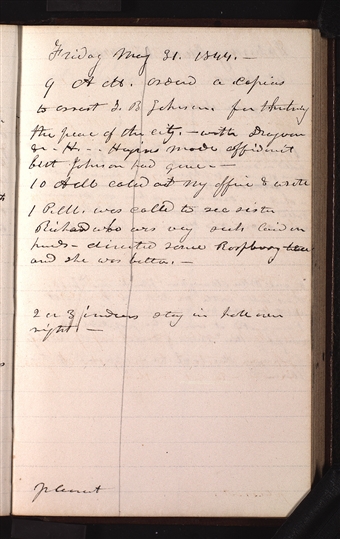 Friday May 31. 1844.—
9 A M. issued a capias
to arrest J. B Johnson for disturbing
the peace of the city. — with Dragoon
& - H. - . Hugins made affidavit
but Johnson had gone —
10 A M called at My office & wrote
1 P.M. was called to see sister
Richards who was very sick laid on
hands - directed some Raspberry tea
and she was better. —
2 or 3 indians stay in hall over
night. —
pleasant